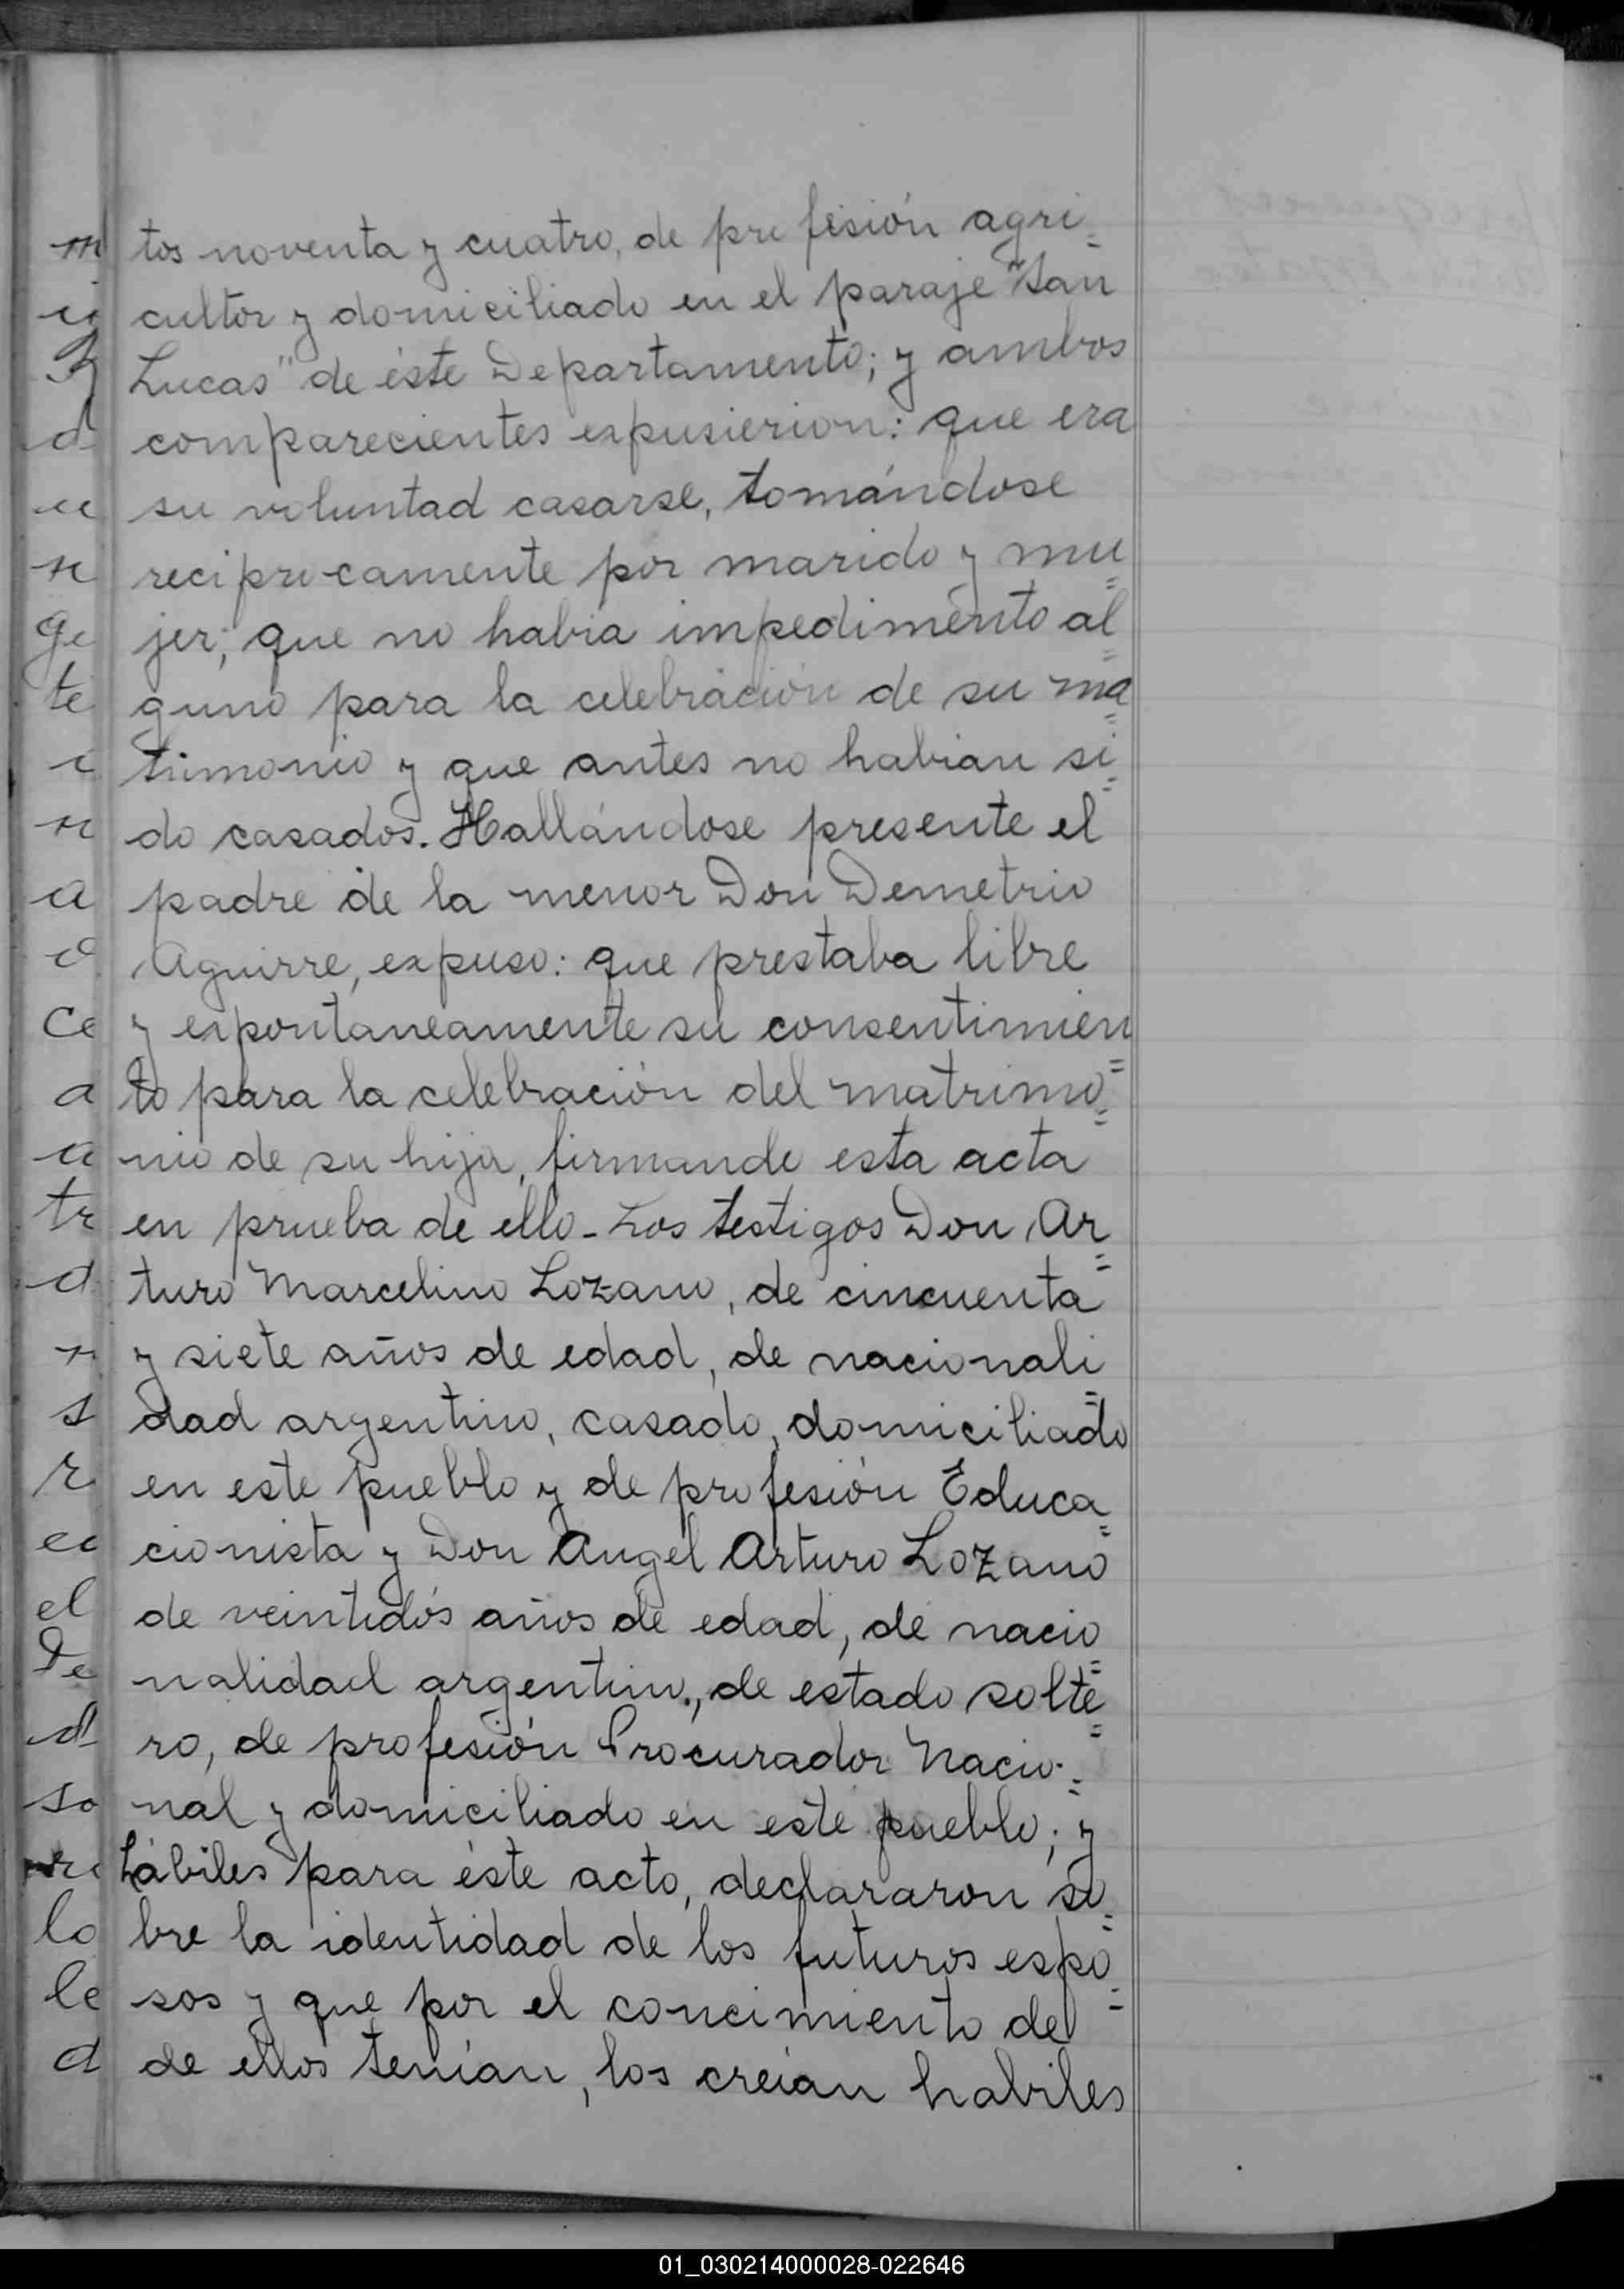 tos noventa y cuatro, de profesión agri=
cultor y domiciliado en el paraje "San
Lucas" de éste Departamento; y ambos
comparecientes expusierion: que era
su voluntad casarse, tomándose
reciprocamente por marido y mu=
jer; que no habia impedimento al=
guno para la celebración de su ma=
trimonio y que antes no habian si=
do casados. Hallándose presente el
padre de la menor Don Demetrio
Aguirre, expuso: que prestaba libre
y espontaneamente su consentimien=
to para la celebración del matrimo=
nio de su hija, firmando esta acta
en prueba de ello - Los testigos Don Ar=
turo Marcelino Lozano, de cincuenta
y siete años de edad, de nacionali=
dad argentino, casado, domiciliado
en este pueblo y de profesión Educa=
cionista y Don Angel Arturo Lozano
de veintidós años de edad, de nacio=
nalidad argentino., de estado solte=
ro, de profesión Procurador Nacio=
nal y domiciliado en este pueblo; y
hábiles para éste acto, declararon so=
bre la identidad de los futuros espo=
sos y que por el concimiento de
de ellos tenían, los creían habiles
01_030214000028-022646